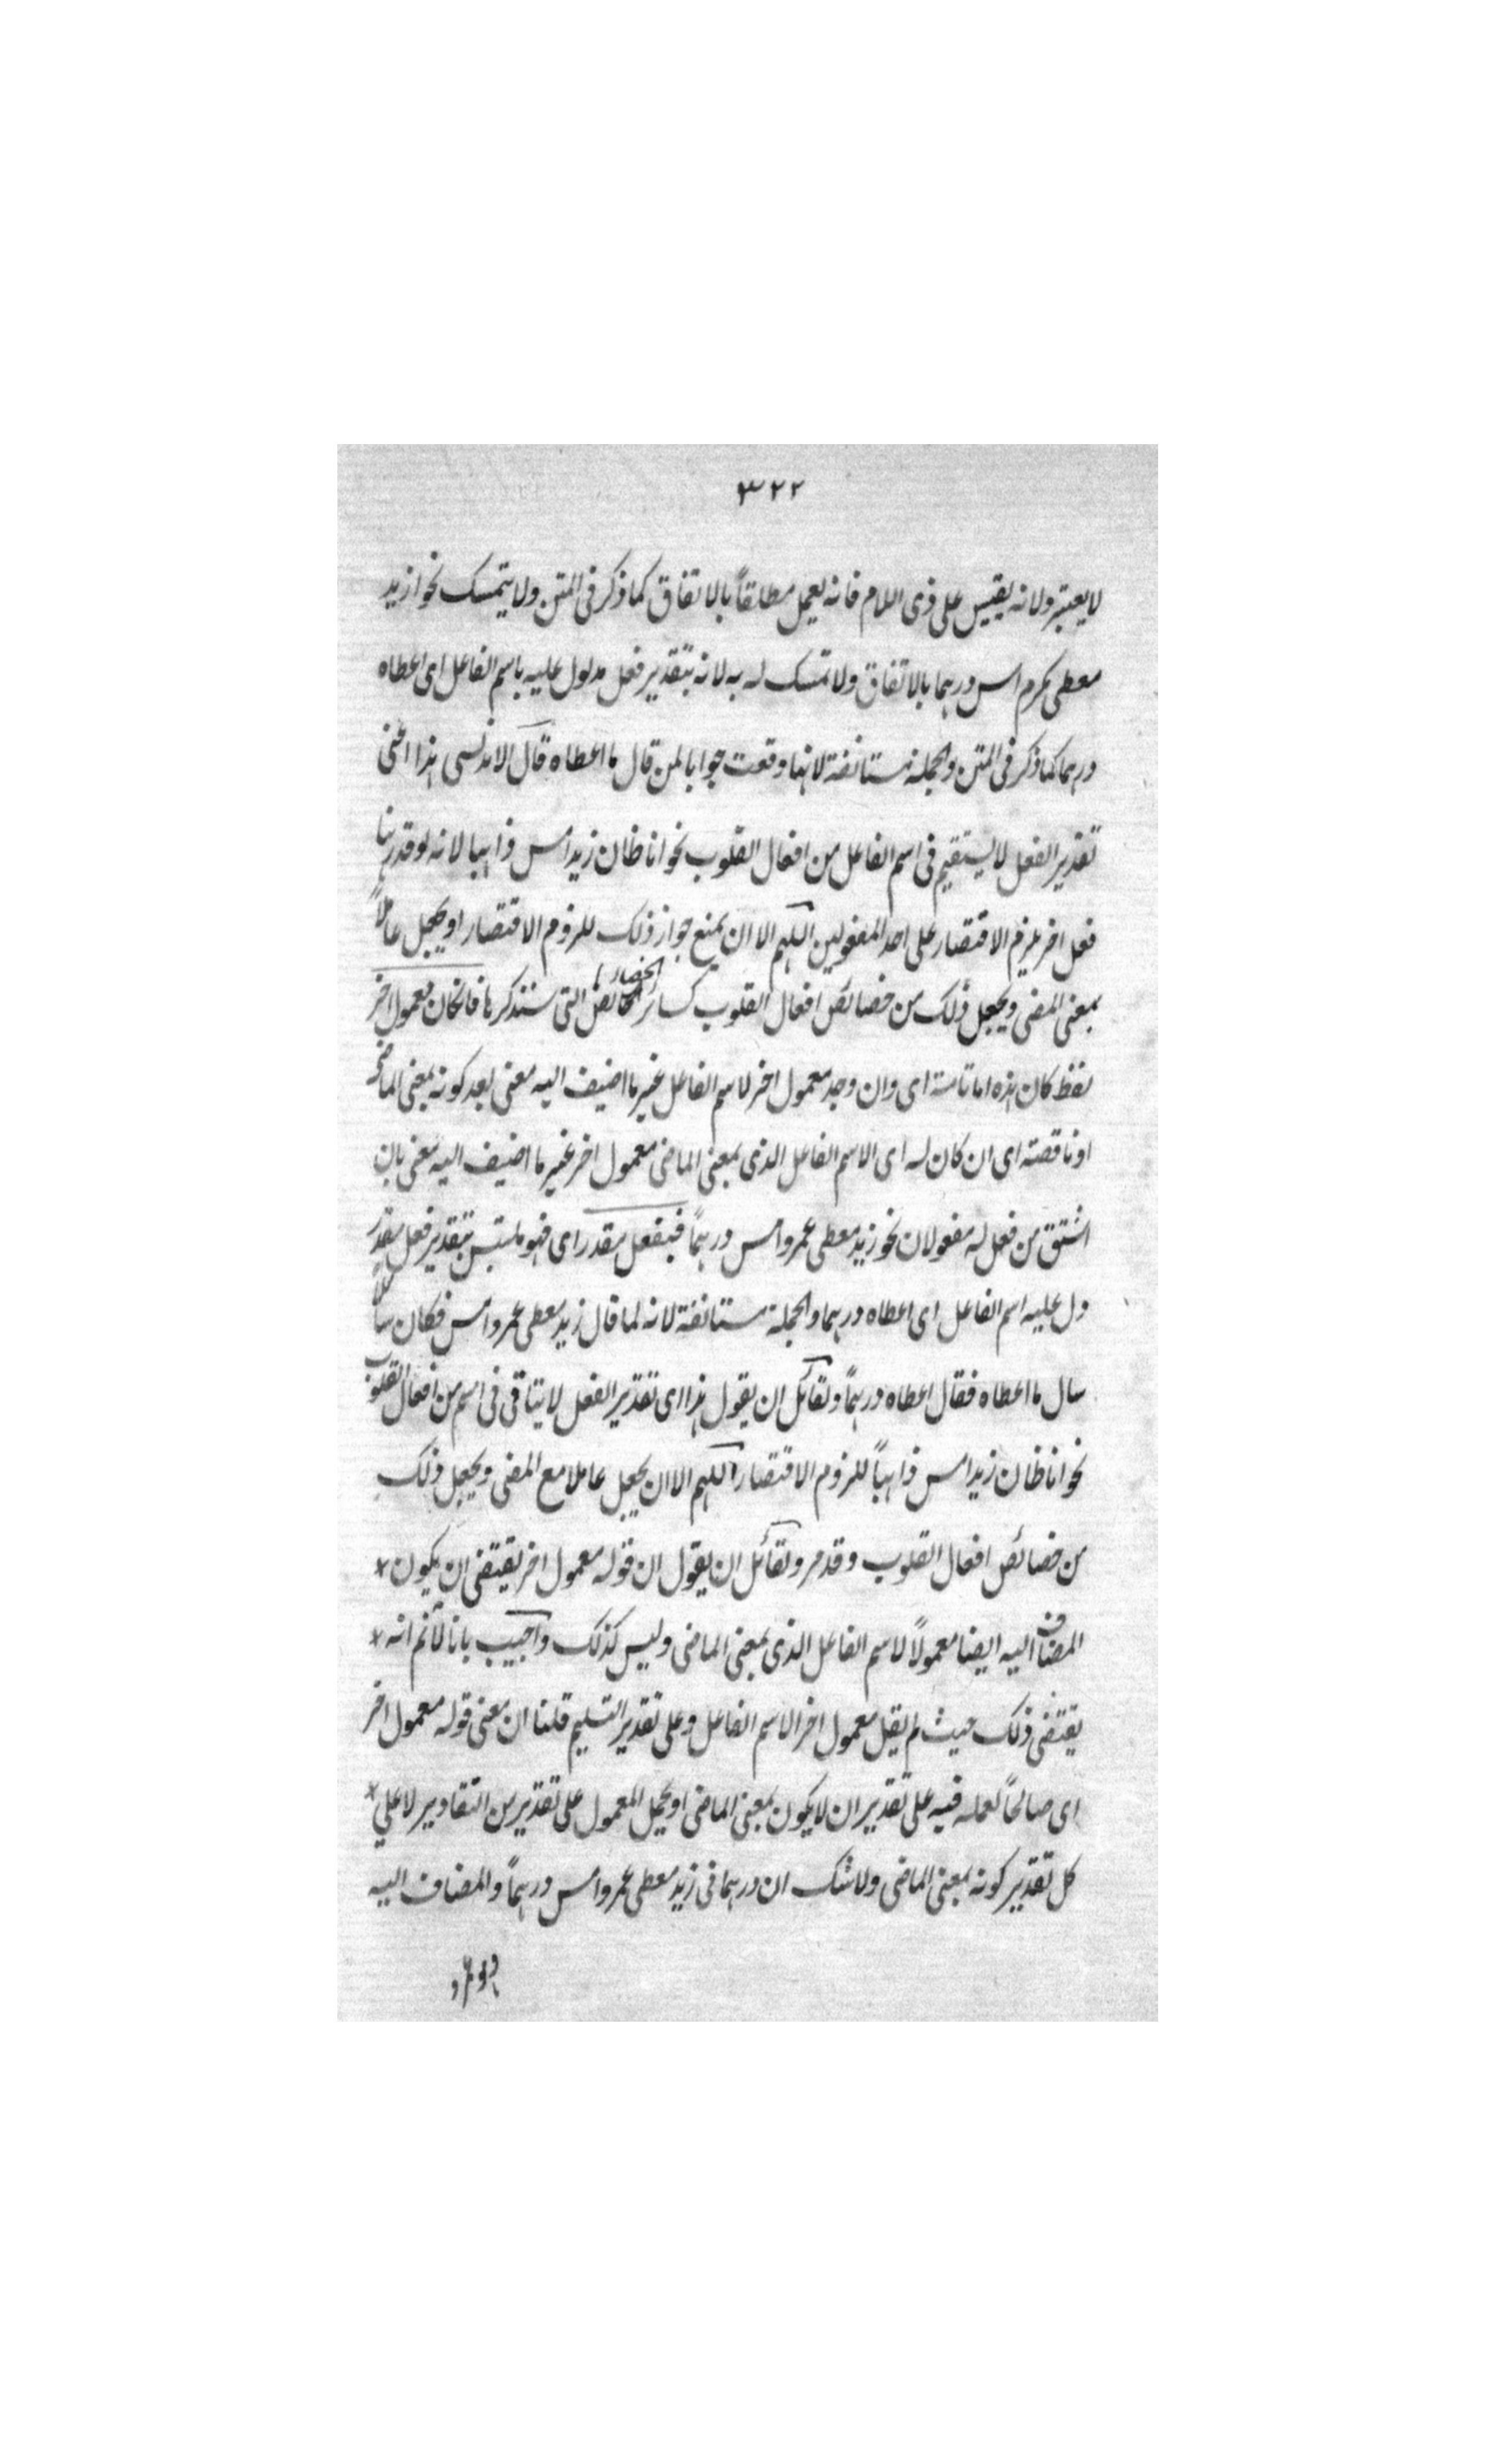 ٣٢٢
لا يعتبر ولانه يقيس على ذى اللام فانه يعمل مطلقاً بالاتفاق كما ذكر فى المتن ولا يتمسك نحو ازيد
معطى بكرم امس درهما بالاتفاق ولا تمسك له به لانه بتقدير فعل مدلول عليه باسم الفاعل اى اعطاه
درهما كما ذكر فى المتن والجملة مستانفة لانها وقعت جوابا لمن قال ما اعطاه قال الاندلسى هذا اعنى
تقدير الفعل لا يستقيم فى اسم الفاعل من افعال القلوب نحو انا ظان زيد امس ذاهبا لانه لو قدر هنا
فعل اخر يلزم الاقتصار على احد المفعولين اللهم الا ان يمنع جواز ذلك للزوم الاقتصار او يجعل عاملاً
بمعنى المضى ويجعل ذلك من خصائص افعال القلوب كسائر الخصائص التى ستذكرها فان كان معمول اخر
لفظ كان هذه اما تامة اى وان وجد معمول اخر لاسم الفاعل غير ما اضيف اليه معنى بعد كونه بمعنى الماضى
او ناقصة اى ان كان له اى الاسم الفاعل الذى بمعنى الماضى معمول اخر غير ما اضيف اليه معنى بان
اشتق من فعل له مفعولان نحو زيد معطى عمرو امس درهماً فبفعل مقدر اى فهو ملتبس بتقدير فعل مقدر
دل عليه اسم الفاعل اى اعطاه درهما والجملة مستانفة لانه لما قال زيد معطى عمرو امس فكان سائلاً
سال ما اعطاه فقال اعطاه درهماً ولقائل ان يقول هذا اى تقدير الفعل لا يتاتى فى اسم من افعال القلوب
نحو انا ظان زيد امس ذاهباً للزوم الاقتصار اللهم الا ان يجعل عاملا مع المضى ويجعل ذلك
من خصائص افعال القلوب وقد مر ولقائل ان يقول ان قوله معمول اخر يقتضى ان يكون
المضاف اليه ايضا معمولاً لاسم الفاعل الذى بمعنى الماضى وليس كذلك واجيب بانا لانم انه
يقتضى ذلك حيث لم يقل معمول اخر الاسم الفاعل وعلى تقدير التسليم قلنا ان معنى قوله معمول اخر
اى صالحاً لعمله فيه على تقدير ان لا يكون بمعنى الماضى او يحمل المعمول على تقدير من التقادير لا على
كل تقدير كونه بمعنى الماضى ولا شك ان درهما فى زيد معطى عمرو امس درهماً والمضاف اليه